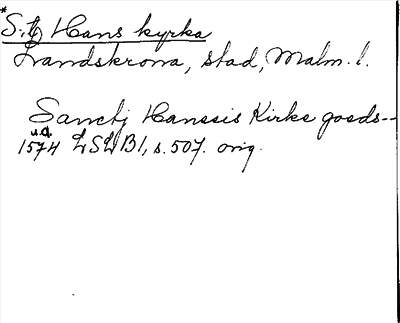 *S:t Hans kyrka
Landskrona, stad, Malm. l.
Sanctj Hanssis Kirke goeds--
u.å.
1574 LSLB1, s. 507. orig.